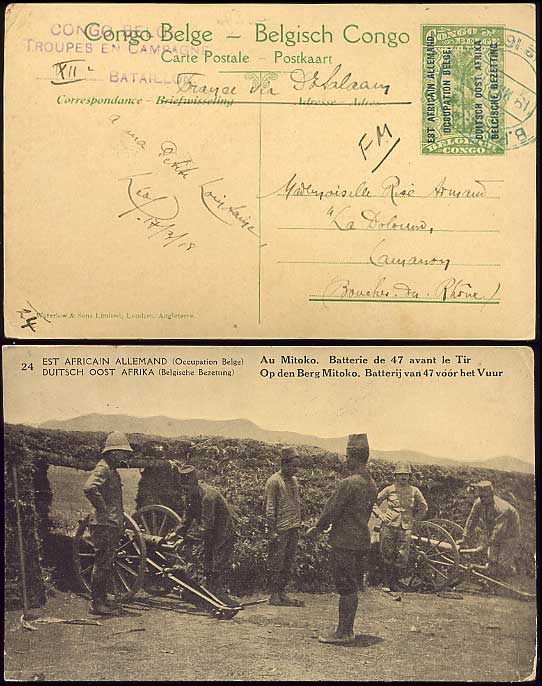 Congo Belge - Belgisch Congo
Carte Postale - Postkaart
CONGO BELGE
TROUPES EN CAMPAGNE
XIIe
BATAILLON
France via D Salaam
Correspondance - Briefwisseling
Adresse - Adres
CONGO BELGE
EST AFRICAIN ALLEMAND
OCCUPATION BELGE.
DUITSCH OOST AFRIKA
BELGISCHE BEZETTING
BELGISCH
CONGO
F-M
a ma Petite Lointaine,
Léo
Mademoiselle Armand
"La
Lamanon
(Bouches-du-Rhône)
24
Waterlow & Sons Limited, Londres, Angleterre.
24 EST AFRICAIN ALLEMAND (Occupation Belge)
DUITSCH OOST AFRIKA (Belgische Bezetting)
Au Mitoko. Batterie de 47 avant le Tir
Op den Berg Mitoko. Batterij van 47 vóór het Vuur